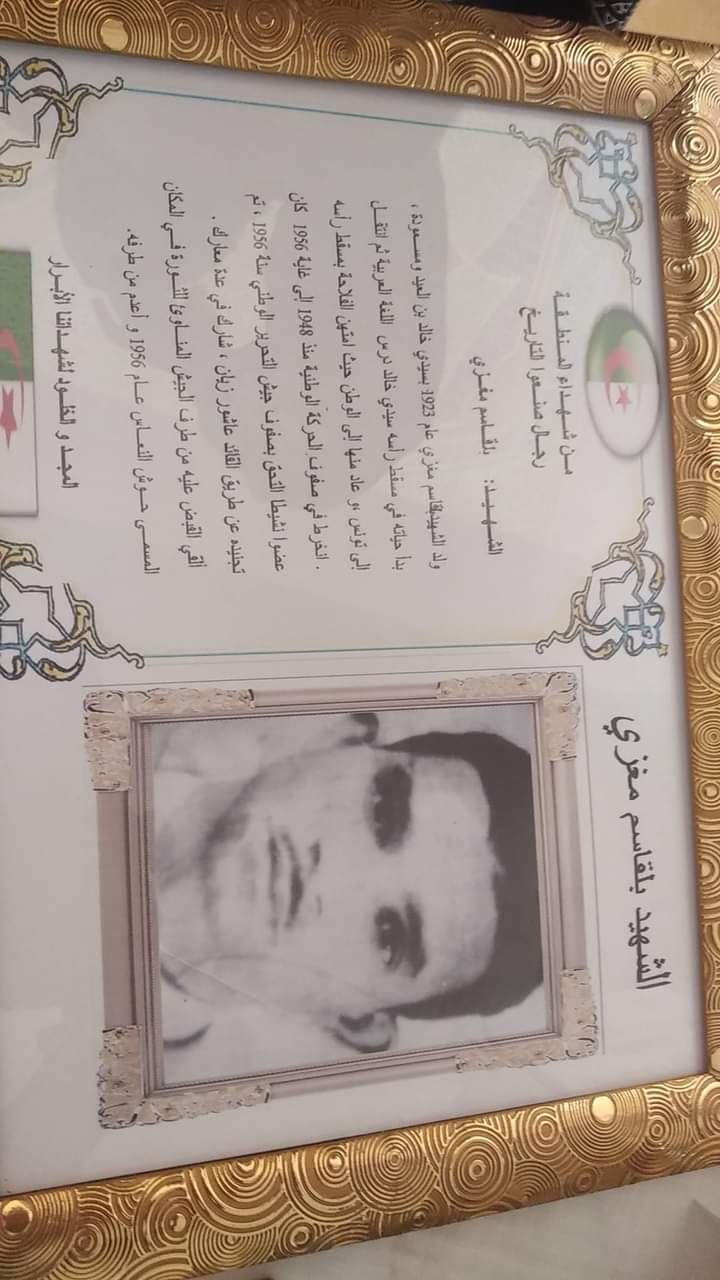 الشهيد بلقاسم مغزي
من شهداء المنطقة
رجال صنعوا التاريخ
الشهيد: بلقاسم مغزي
ولد الشهيد بلقاسم مغزي عام 1923 بسيدي خالد بن العيد ومسعودة ،
بدأ حياته في مسقط رأسه سيدي خالد درس اللغة العربية ثم انتقل
إلى تونس ،و عاد منها إلى الوطن حيث امتهن الفلاحة بمسقط رأسه
. انخرط في صفوف الحركة الوطنية منذ 1948 إلى غاية 1956 كان
عضوا نشيطا التحق بصفوف جيش التحرير الوطني سنة 1956 ، تم
تجنيده عن طريق القائد عاشور زيان ، شارك في عدة معارك .
ألقي القبض عليه من طرف الجيش المناوئ للثورة في المكان
المسمى حوش النعاس عام 1956 و أعدم من طرفه.
المجد و الخلود لشهدائنا الأبرار